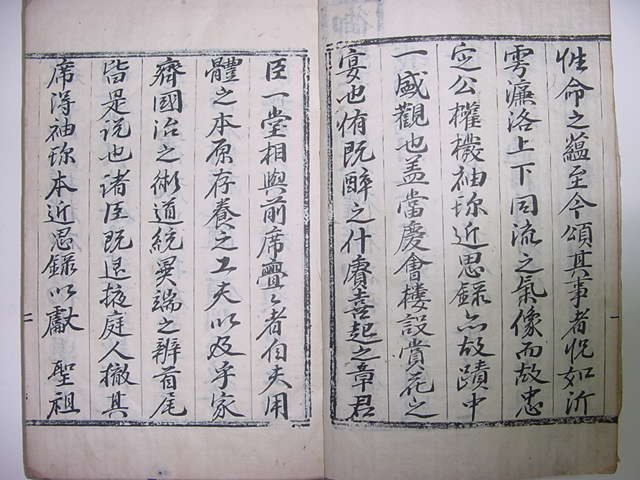 性命之蘊至今頌其事者怳如沂
雩濂洛上下同流之氣像而故忠
定公權橃袖珍近思錄亦故蹟中
一盛觀也盖當慶會樓設賞花之
宴也侑既醉之什賡喜起之章君
臣一堂相與前席亹〻者自夫用
體之本原存養之工夫以及乎家
齊國治之術道統異端之辨首尾
皆是說也諸臣既退掖庭人撤其
席得袖珍本近思錄以獻 聖祖